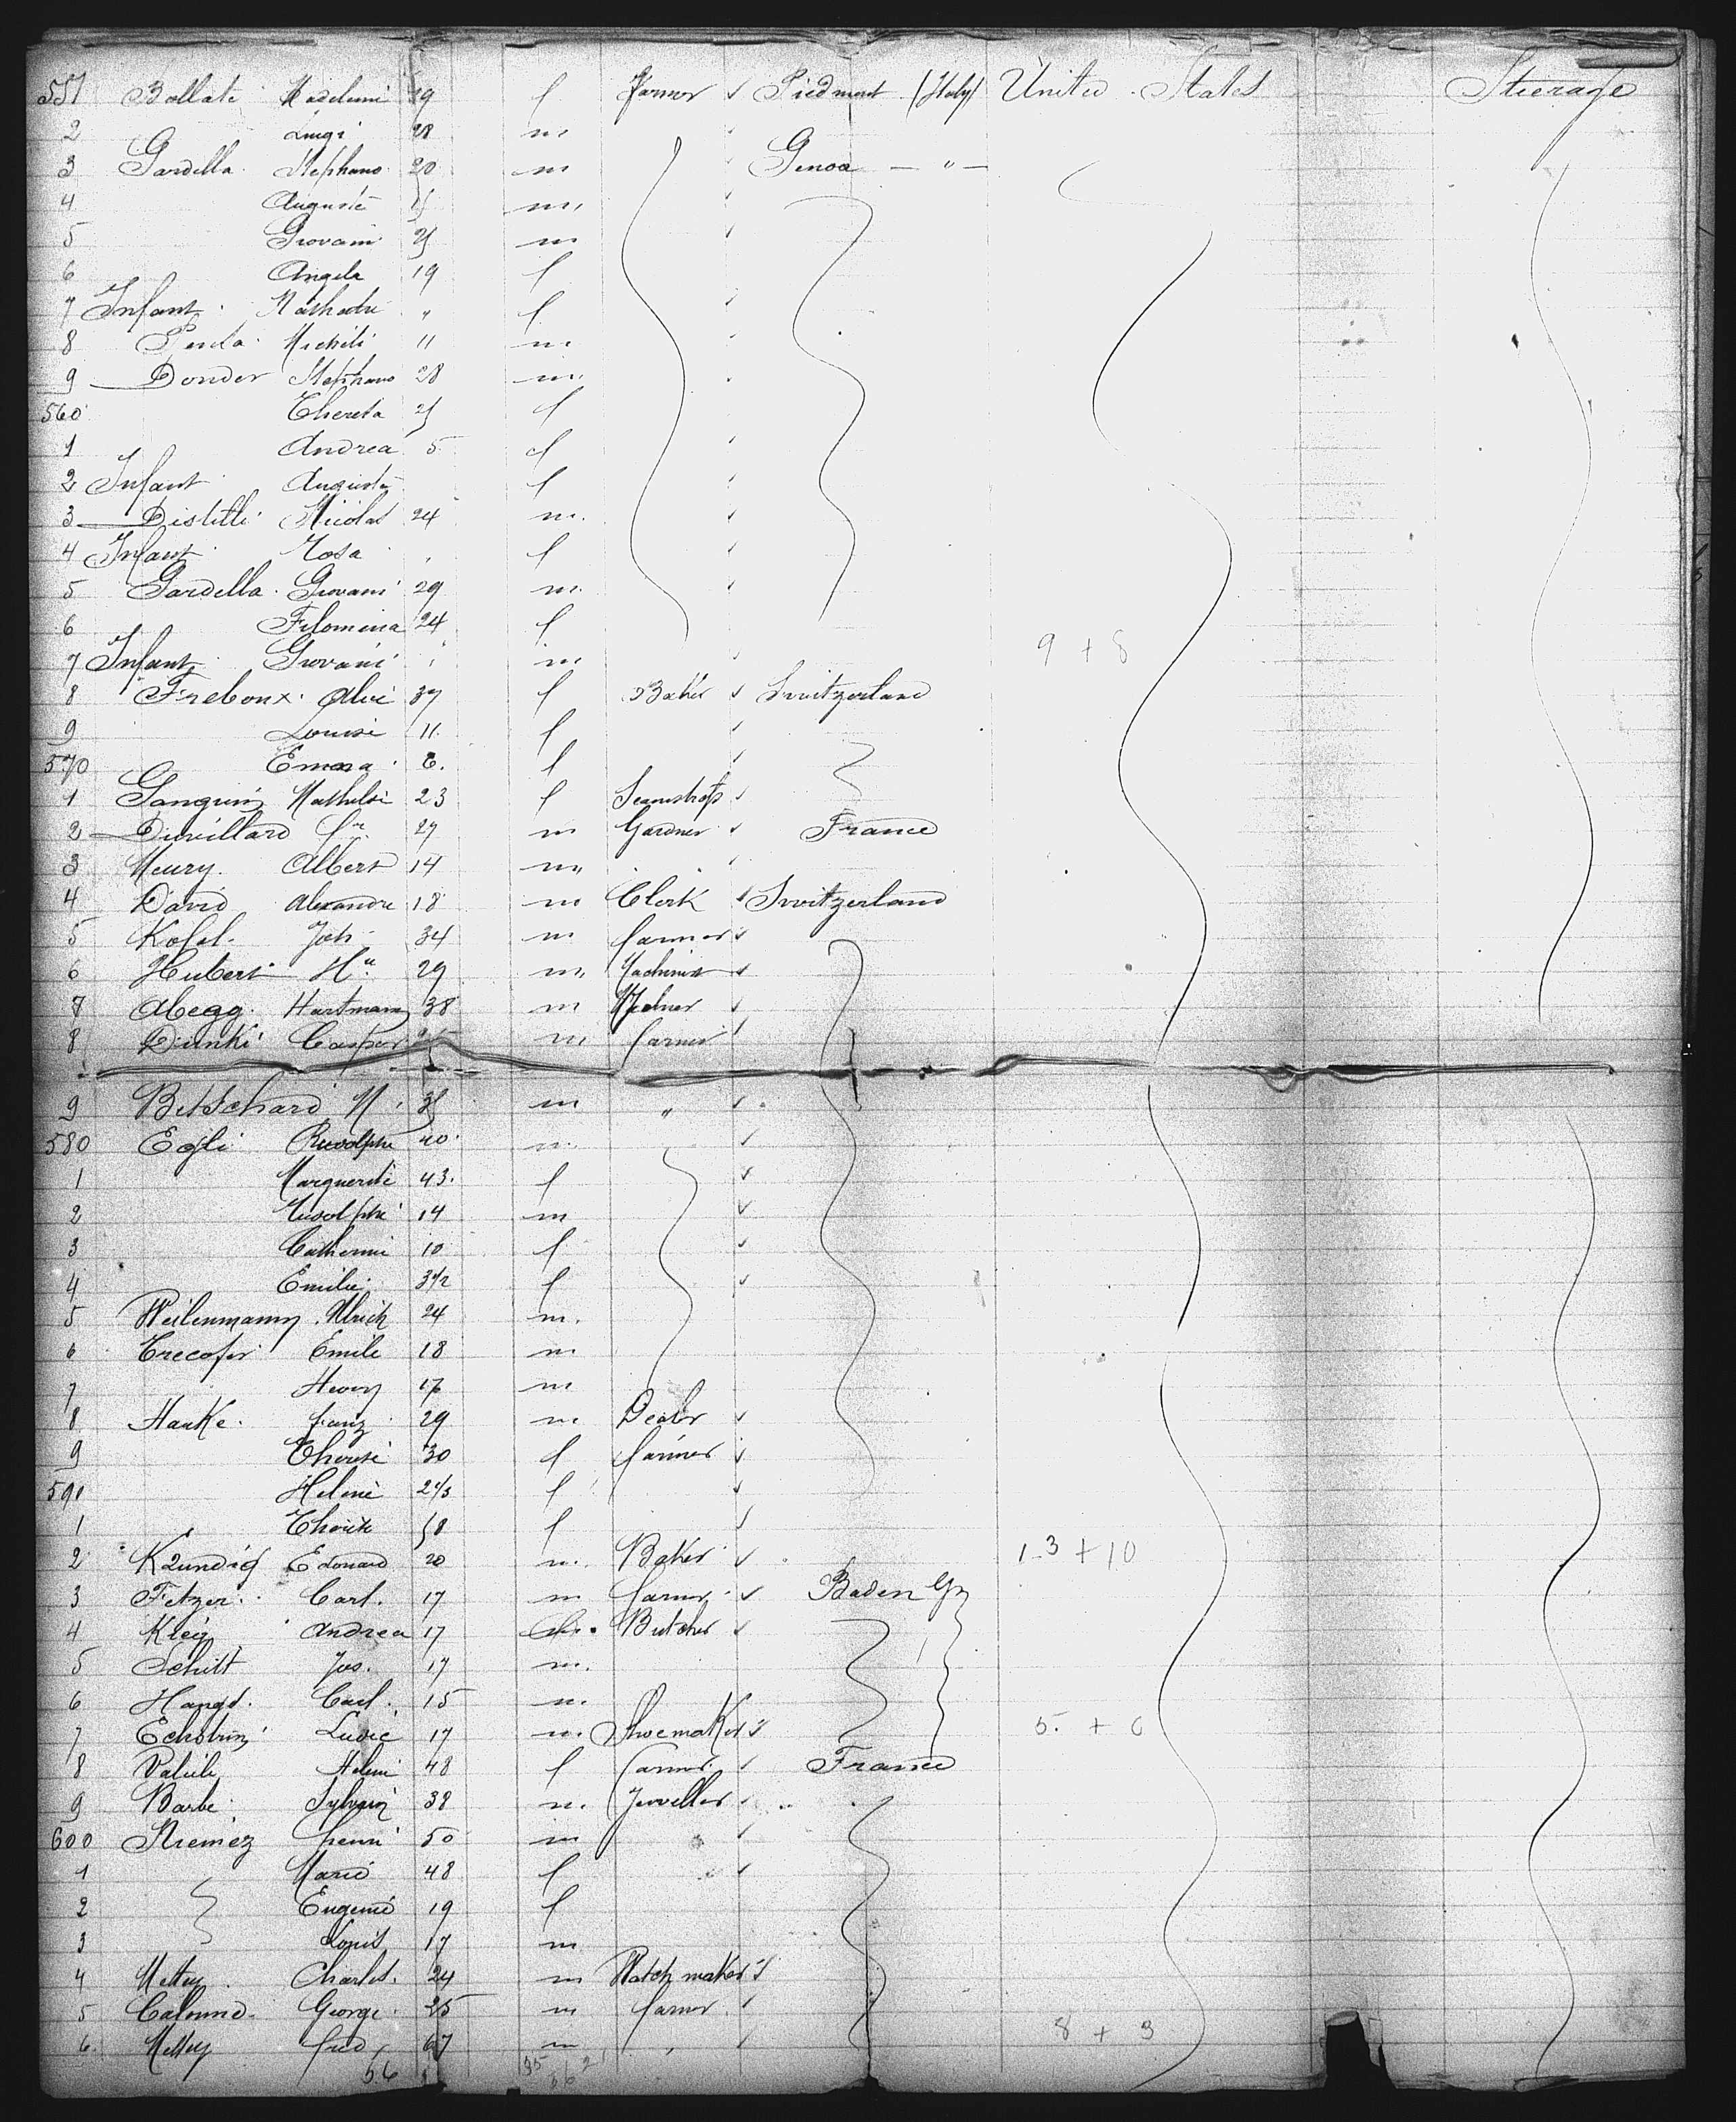 551 Ballati Madeleine 19 f Farmer ✓ Piedmont (Italy) United States Steerage
2 Luigi 28 m ✓
3 Gardella Stephano 20 m ✓ Genoa — " —
4 Auguste m ✓
5 Giovani m ✓
6 Angela 19 f
7 Infant " f ✓
8 Micheli 11 m
9 Donder Stephano 28 m
560 Theresa f
1 Andrea 5 f ✓
2 Infant Auguste f ✓
3 Distilli Nicolas 24 m ✓
4 Infant Rosa f ✓
5 Gardella Giovani 29 m ✓
6 Filomina 24 f
7 Infant Giovani m 9 + 8
8 Freboux Alice 37 f Baker ✓ Switzerland
9 Louise 11 f ✓
570 Emma 6 f ✓
1 Sanguin Mathilde 23 f Seamstress ✓
2 Duvillard Fr 27 m Gardner ✓ France
3 Meury Albert 14 m
4 David Alexandre 18 m Clerk ✓ Switzerland
5 Kofel Joh 34 m farmer ✓
6 Hubert Hn 29 m Machinist ✓
7 Abegg Hartmann 38 m ✓
8 Dünki Caspar m farmer ✓
9 Betschard M m " ✓
580 Egli Rudolphe 40 m ✓
1 Marguerite 43 f ✓
2 Rudolphe 14 m ✓
3 Catherine 10 f ✓
4 Emilie 3 1/2 f ✓
5 Weilenmann Ulrich 24 m
6 Emile 18 m
7 Henry 17 m
8 Hauke franz 29 m Dealer ✓
9 Therese 30 f farmer ✓
590 Helene f ✓
1 f ✓
2 Kaundig Edouard 20 m Baker ✓ 13 + 10
3 Fetzer Carl 17 m farmer ✓ Baden Gy
4 Kleiz Andrea 17 m Butcher ✓
5 Schilt Jos. 17 m
6 Hangs Carl 15 m
7 17 m Shoemaker ✓ 5 + 6
8 Helene 48 f farmer ✓ France
9 Barbe Sylvain 38 m Jeweller ✓
600 henri 50 m ✓
1 Marie 48 f ✓
2 Eugenie 19 f
3 Louis 17 m
4 Mettey Charles 24 m Watch maker ✓
5 George 25 m farmer ✓
6 Mettey fred 67 m ✓ 8 + 3
56 35 21